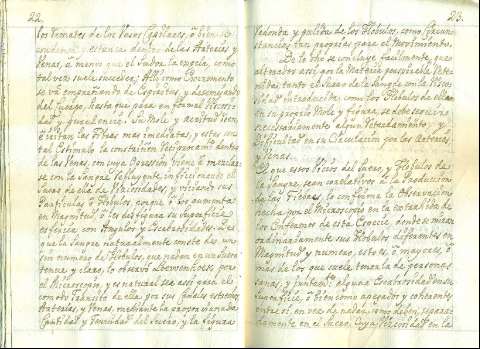 22.
los Remates de los Vasos Capilares, ô bien
estancia dentro de las Arterias y
Venas, â menos que el Sudor la expela, como
tal vez suele suceder; Assi como Excremento
se va impregnando de Espiritus, y desemejando
del Juego, hasta que passa en formal
dad y Su Mole, y Acritud bien
ô irritan las Fibras mas imediatas, y estas con
tal Estimulo la constriñen dentro
de las Venas, con cuya Opression viene â mezclar-
se con la Sangre refluyente, inficionando el
Suero de ella de Viscosidades, y viciando sus
Particulas ô Globulos, porque ô los aumenta
en Magnitud, ô les desfigura su superficie
esferica con Angulos y Escabrosidades: i es
que la Sangre naturalmente consta de un
sin numero de Globulos, que nadan en un Suero
tenue y claro, lo observò Leewenhoeck por
el Microscopio, y es natural sea assi para el
comodo transito de ella por sus finales extremos
Arterias, y Venas, mediante la
Cantidad y tenuidad del Suero, y la figura
23.
Redonda y pulida de los Globulos, como Circun-
stancias tan proprias para el Movimiento.
De lo dho se concluye facilmente, que
alterados assi por la Materia
das, tanto el Suero de la Sangre con la Viscos-
idad introducida, como los Globulos de ella
en su proprio Mole y figura, se debe seguir
necessariamente algun Retardamiento, y
Dificultad en su Circulacion por las Arterias
y Venas.
Que estos Vicios del Suero, y Globulos de
la Sangre, sean correlativos â la Produccion
de las Fiebres, lo confirma la Observacion
hecha por el Microscopio en la extrahida de
los Enfermos de esta Especie, donde se miran
ordinariamente sus Globulos diferentes en
Magnitud y numero, esto es, ô mayores, ô
mas de los que suele tenerla de personas
sanas, y juntamte alguna Escabrosidad en su
Superficie, ô bien como apegados y coherentes
entre sì, en vez de nadar, como deben, separada-
damente en el Suero, Cuya Viscosidad en la